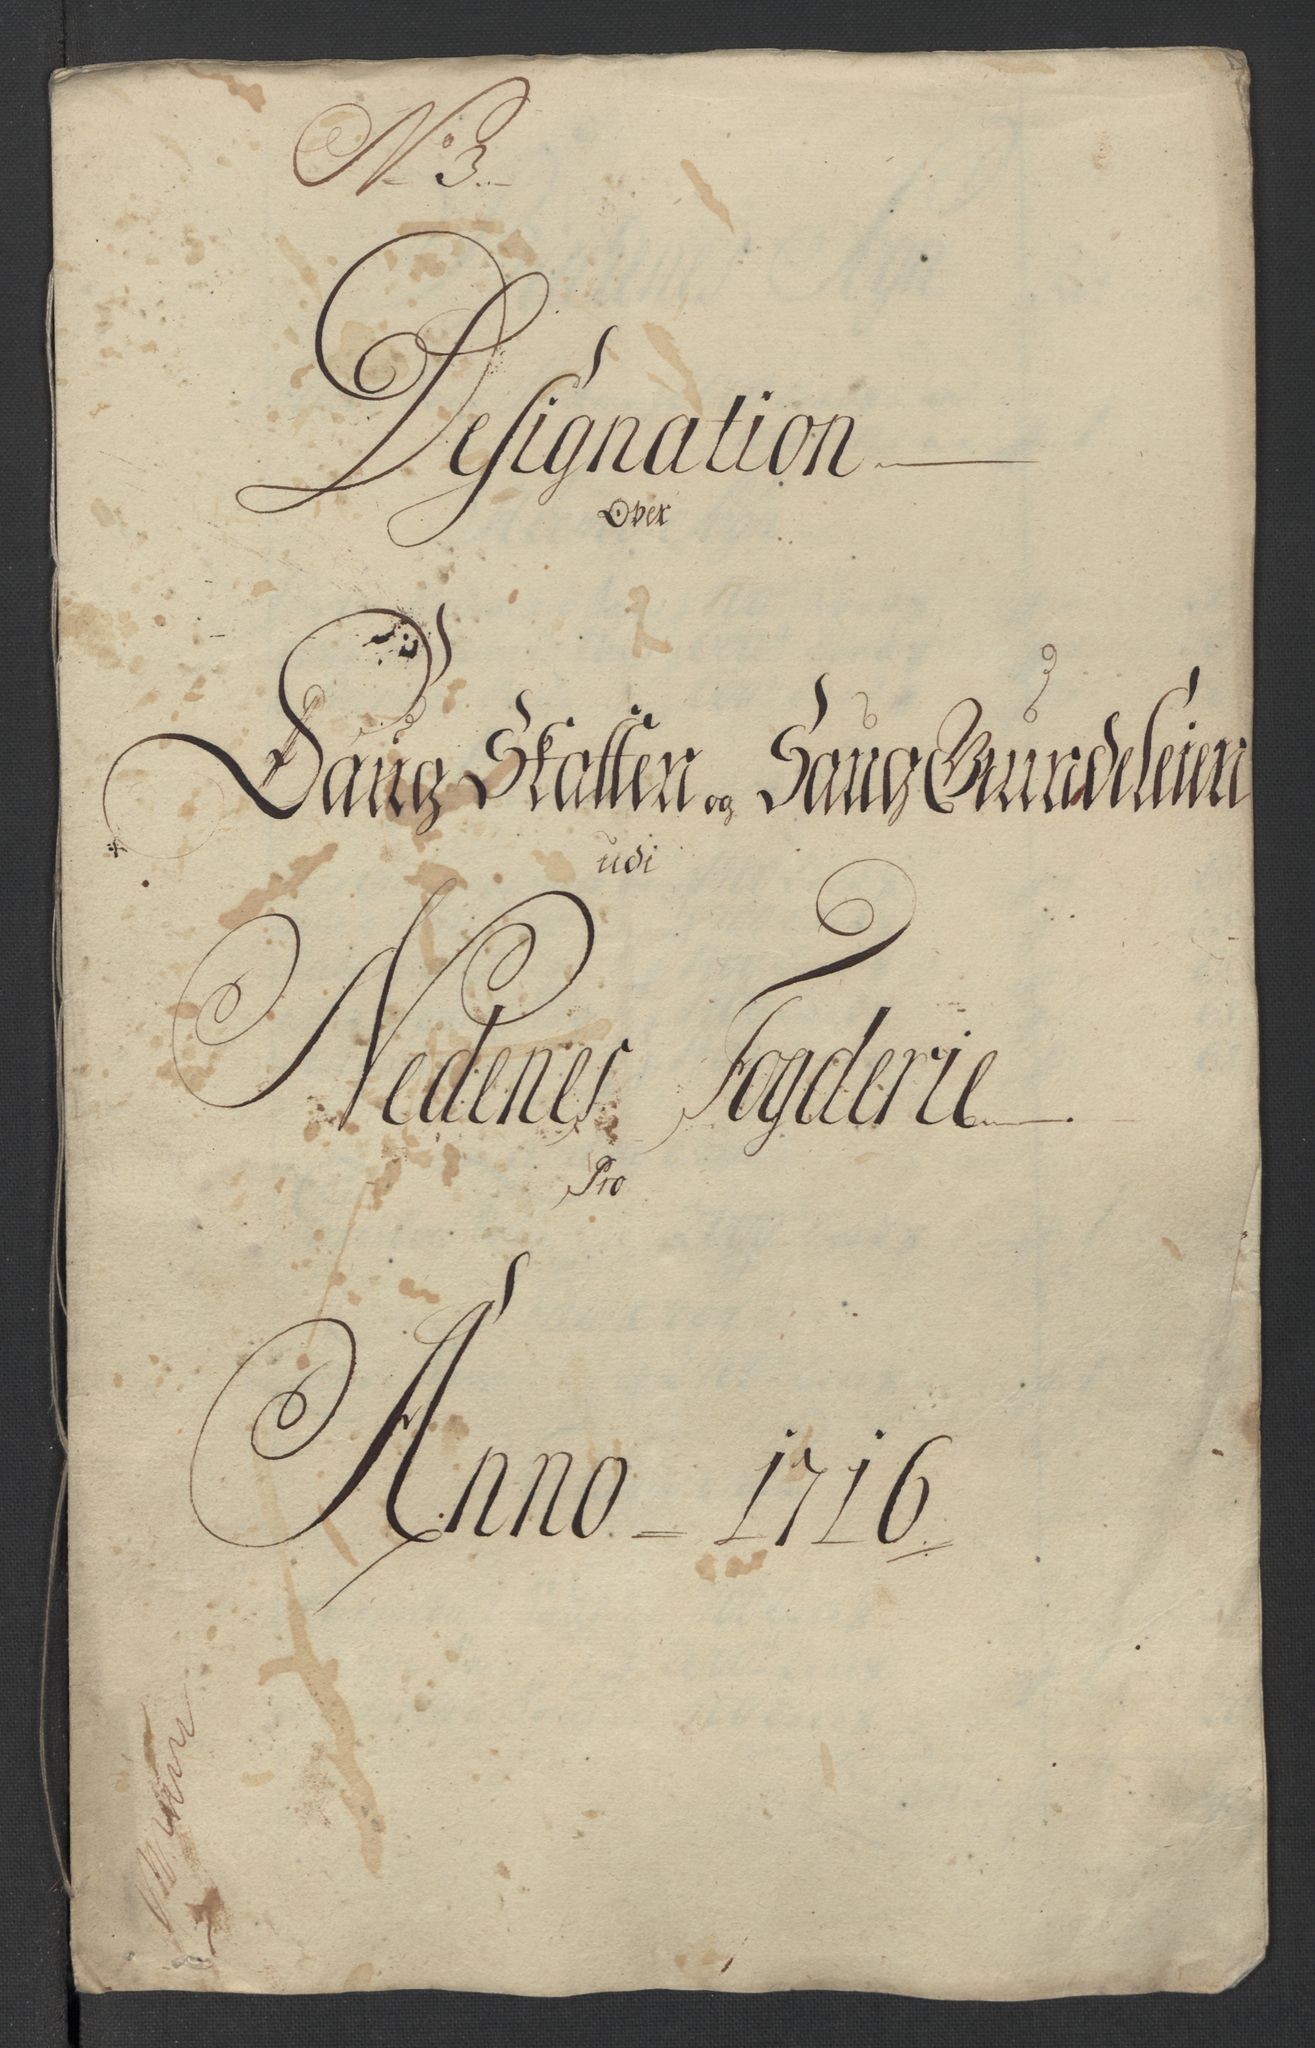 No 3
Designation
Over
Saug Skatten og Saug Grundeleien
udi
Nedenes Fogderie
Pro
Anno 1716